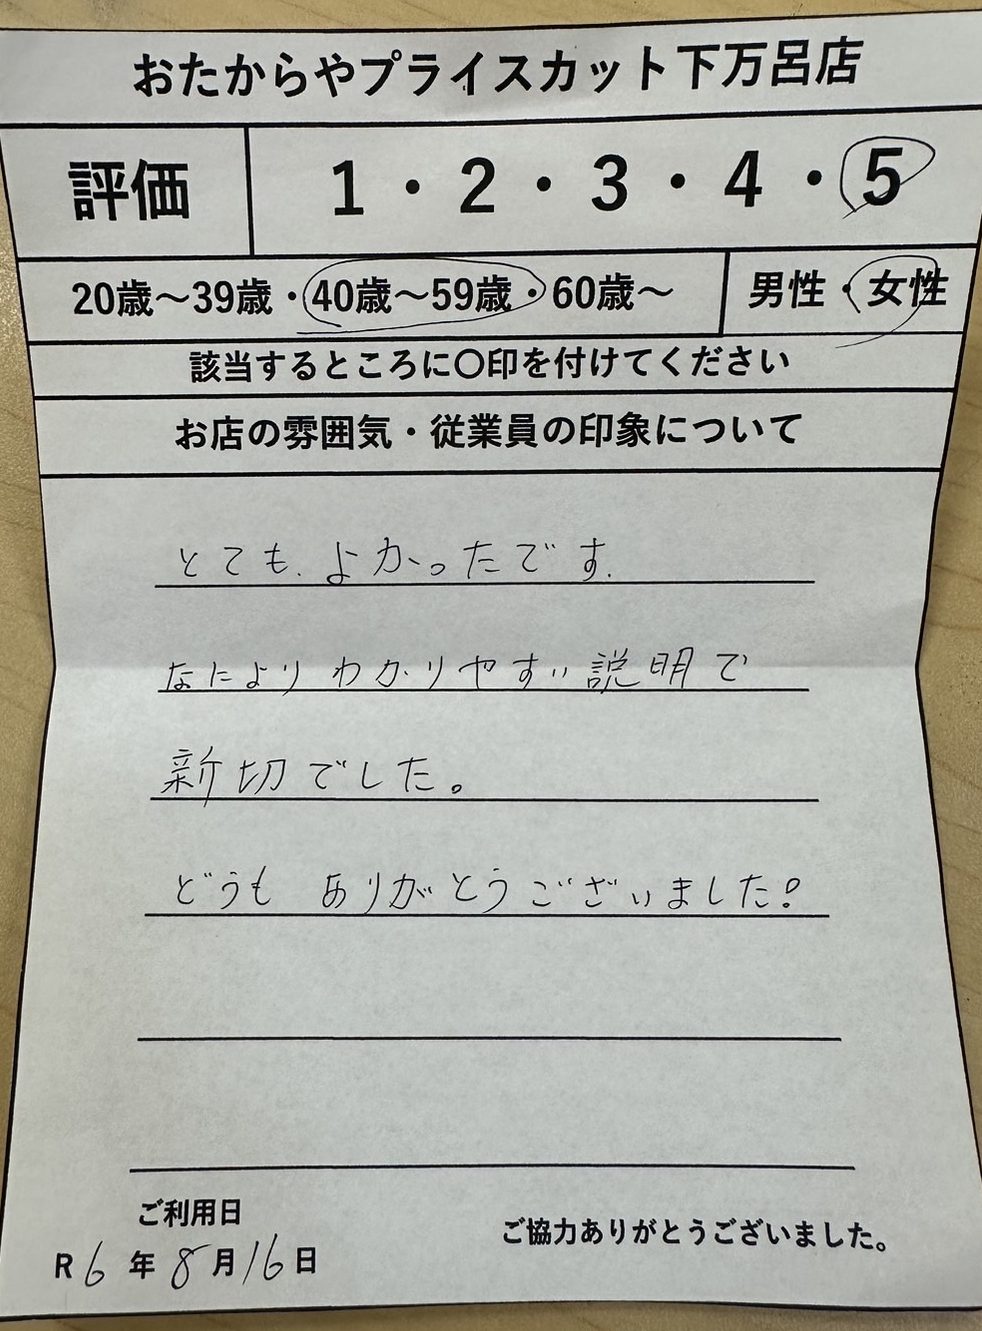 おたからやプライスカット下万呂店
評価 1・2・3・4・5
20歳～39歳・40歳～59歳・60歳～ 男性・女性
該当するところに〇印を付けてください
お店の雰囲気・従業員の印象について
とても、よかったです。
なによりわかりやすい説明で
新切でした。
どうも ありがとうございました!
ご利用日
R6年8月16日
ご協力ありがとうございました。